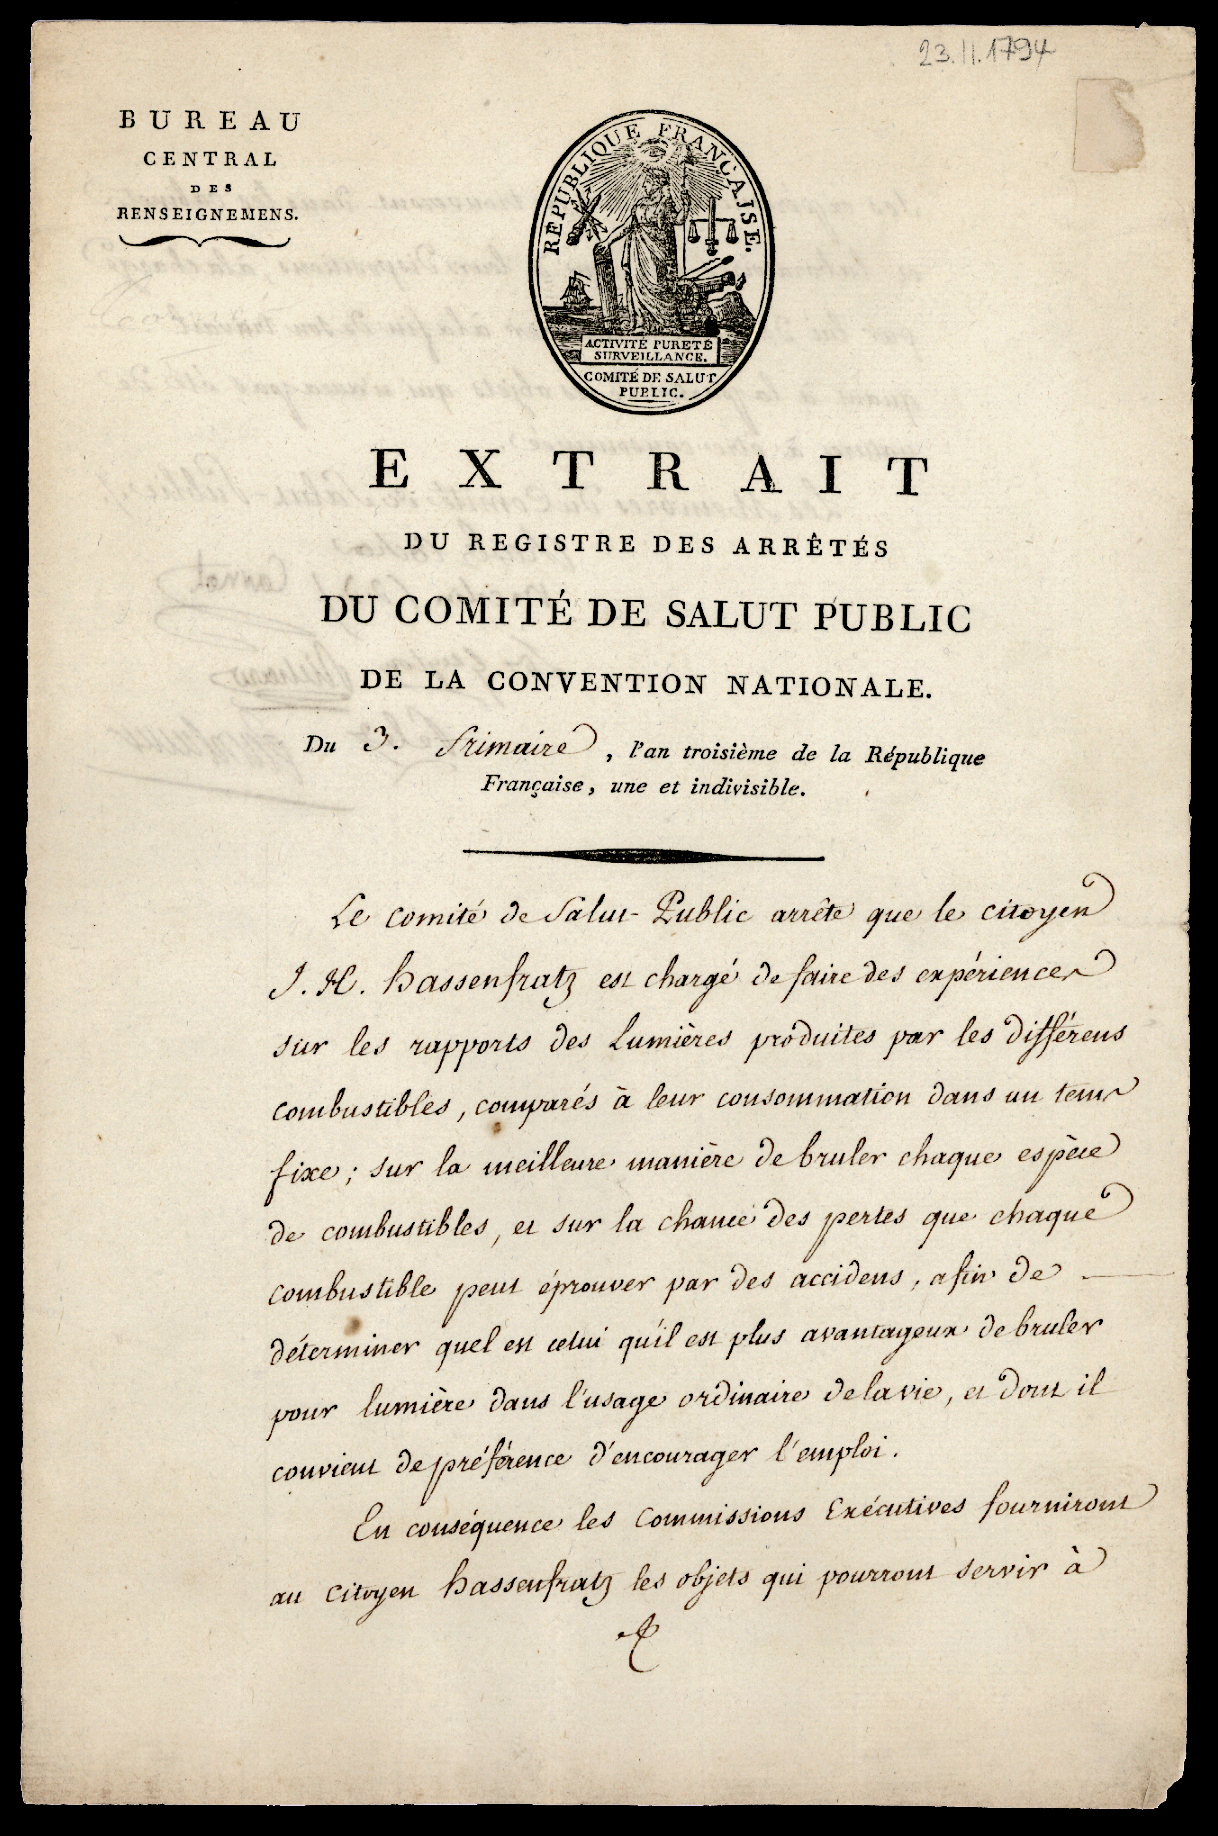 23.11.1794
BUREAU
CENTRAL
DES
RENSEIGNEMENS.
RÉPUBLIQUE FRANÇAISE.
ACTIVITÉ PURETÉ
SURVEILLANCE.
COMITÉ DE SALUT
PUBLIC.
EXTRAIT
DU REGISTRE DES ARRÊTÉS
DU COMITÉ DE SALUT PUBLIC
DE LA CONVENTION NATIONALE.
Du 3. frimaire, l'an troisième de la République
Française, une et indivisible.
Le Comité de Salut-Public arrête que le citoyen
J. H. hassenfratz est chargé de faire des expériences
sur les rapports des Lumières produites par les différens
combustibles, comparés à leur consommation dans un tems
fixe; sur la meilleure manière de bruler chaque espèce
de combustibles, et sur la chance des pertes que chaque
combustible peut éprouver par des accidens, afin de
déterminer quel est celui qu'il est plus avantageux de bruler
pour lumière dans l'usage ordinaire de la vie, et dont il
convient de préférence d'encourager l'emploi.
En conséquence les Commissions Exécutives fourniront
au Citoyen hassenfratz les objets qui pourront servir à